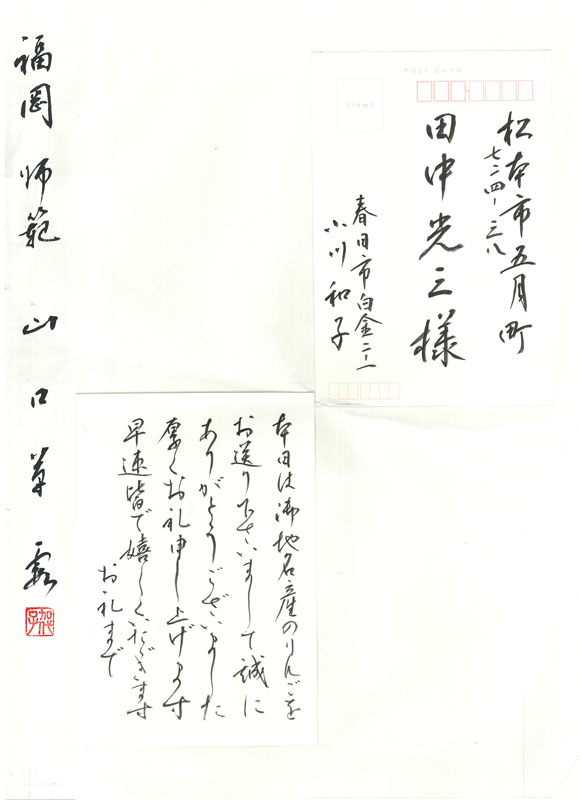 POST CARD
STAMP
松本市五月町
七二四ー三八
田中光三様
春日市白金二ー一
小川和子
本日は御地名産のりんごを
お送り下さいまして誠に
ありがとうございました
厚くお礼申し上げます
早速皆で嬉しくいただきます
お礼まで
福岡 師範 山口草露